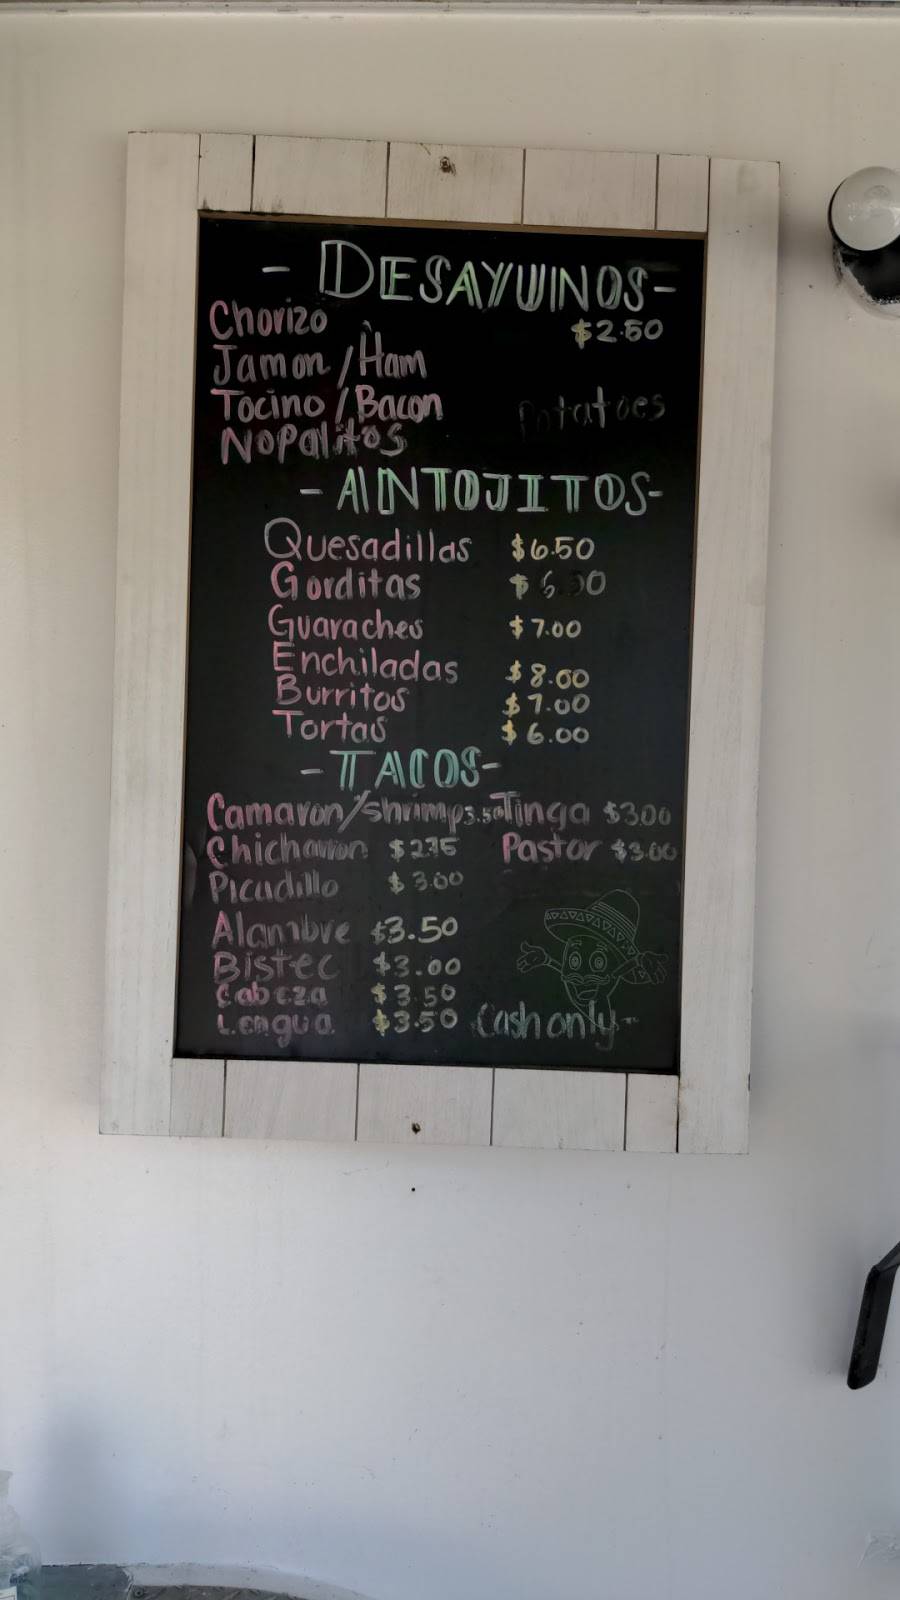 - DESAYUNOS -
Chorizo $2.50
Jamon / Ham
Tocino / Bacon Potatoes
Nopalitos
- ANTOJITOS -
Quesadillas $6.50
Gorditas $6.50
Guaraches $7.00
Enchiladas $8.00
Burritos $7.00
Tortas $6.00
- TACOS -
Camaron/shrimp 3.50 Tinga $3.00
Chicharron $2.75 Pastor $3.00
Picadillo $3.00
Alambre $3.50
Bistec $3.00
Cabeza $3.50
Lengua $3.50 Cash only